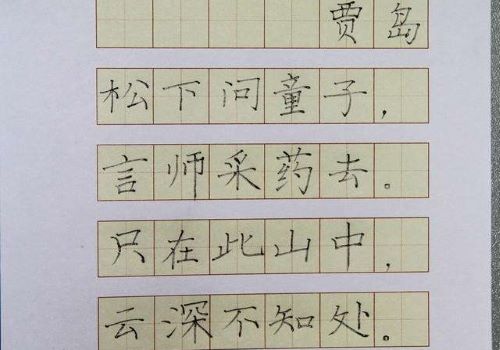 贾岛
松下问童子，
言师采药去。
只在此山中，
云深不知处。